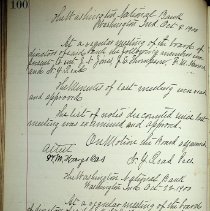 100
The Washington National Bank
Washington Ind. Oct 8 1900
At a regular meeting of the board of
directors of said Bank the following members were
present
The Minutes of last meeting were read
and approved.
The list of notes discounted since last
meeting was examined and approved.
On Motion the Board adjourned
Attest
The Washington National Bank
Washington Ind. Oct 1900
At a regular meeting of the board